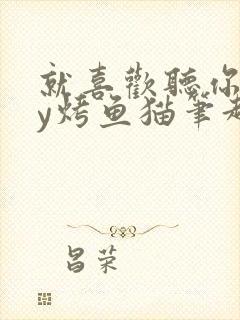 就喜歡聽你
y烤鱼猫笔趣
昌荣